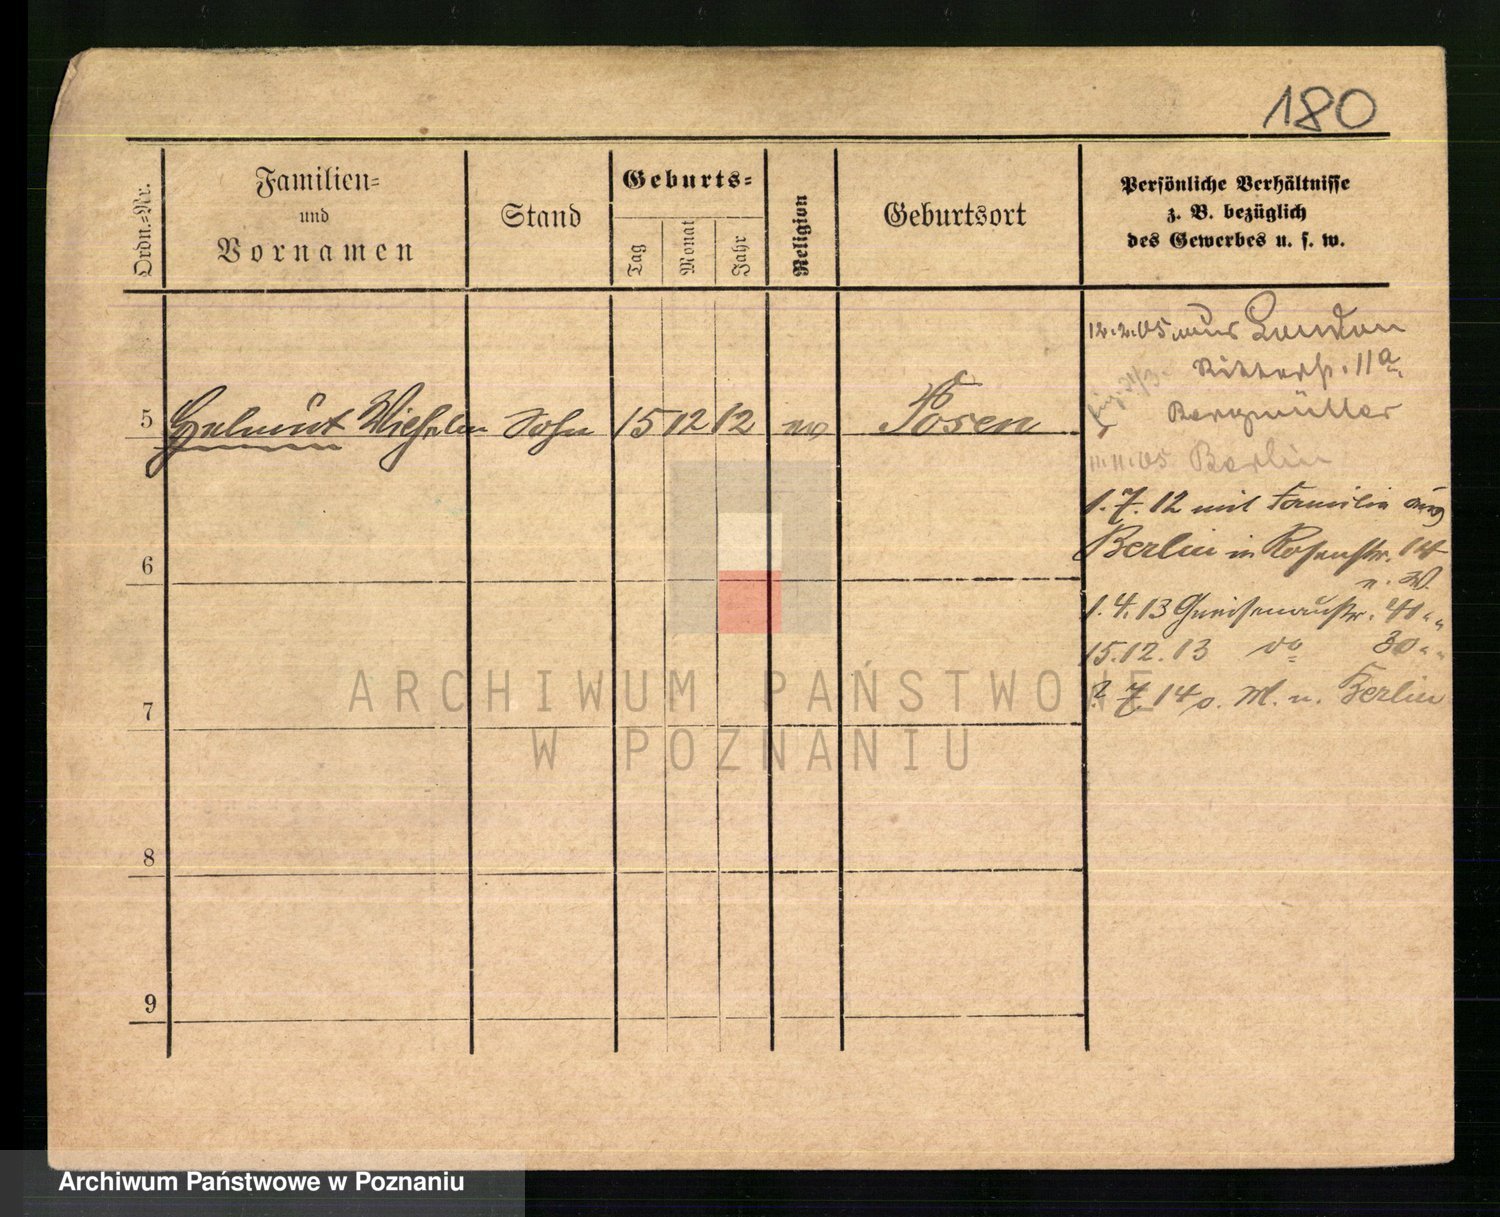 180
Ordn.=Nr.
Familien=
und
Vornamen
Stand
Geburts=
Tag
Monat
Jahr
Religion
Geburtsort
Persönliche Verhältnisse
z. B. bezüglich
des Gewerbes u. s. w.
12.2.05 aus London
Ritterstr. 11a
Bergmüller
11.11.05 Berlin
5 Helmut Wilhelm Sohn 15 12 12 ev Posen
1.7.12 mit Familie aus
Berlin in Rosenstr. 14
1.4.13 Gneisenaustr. 41 " "
15.12.13 do 30 " "
7.14 Berlin
6
7
8
9
ARCHIWUM PAŃSTWOWE
W POZNANIU
Archiwum Państwowe w Poznaniu